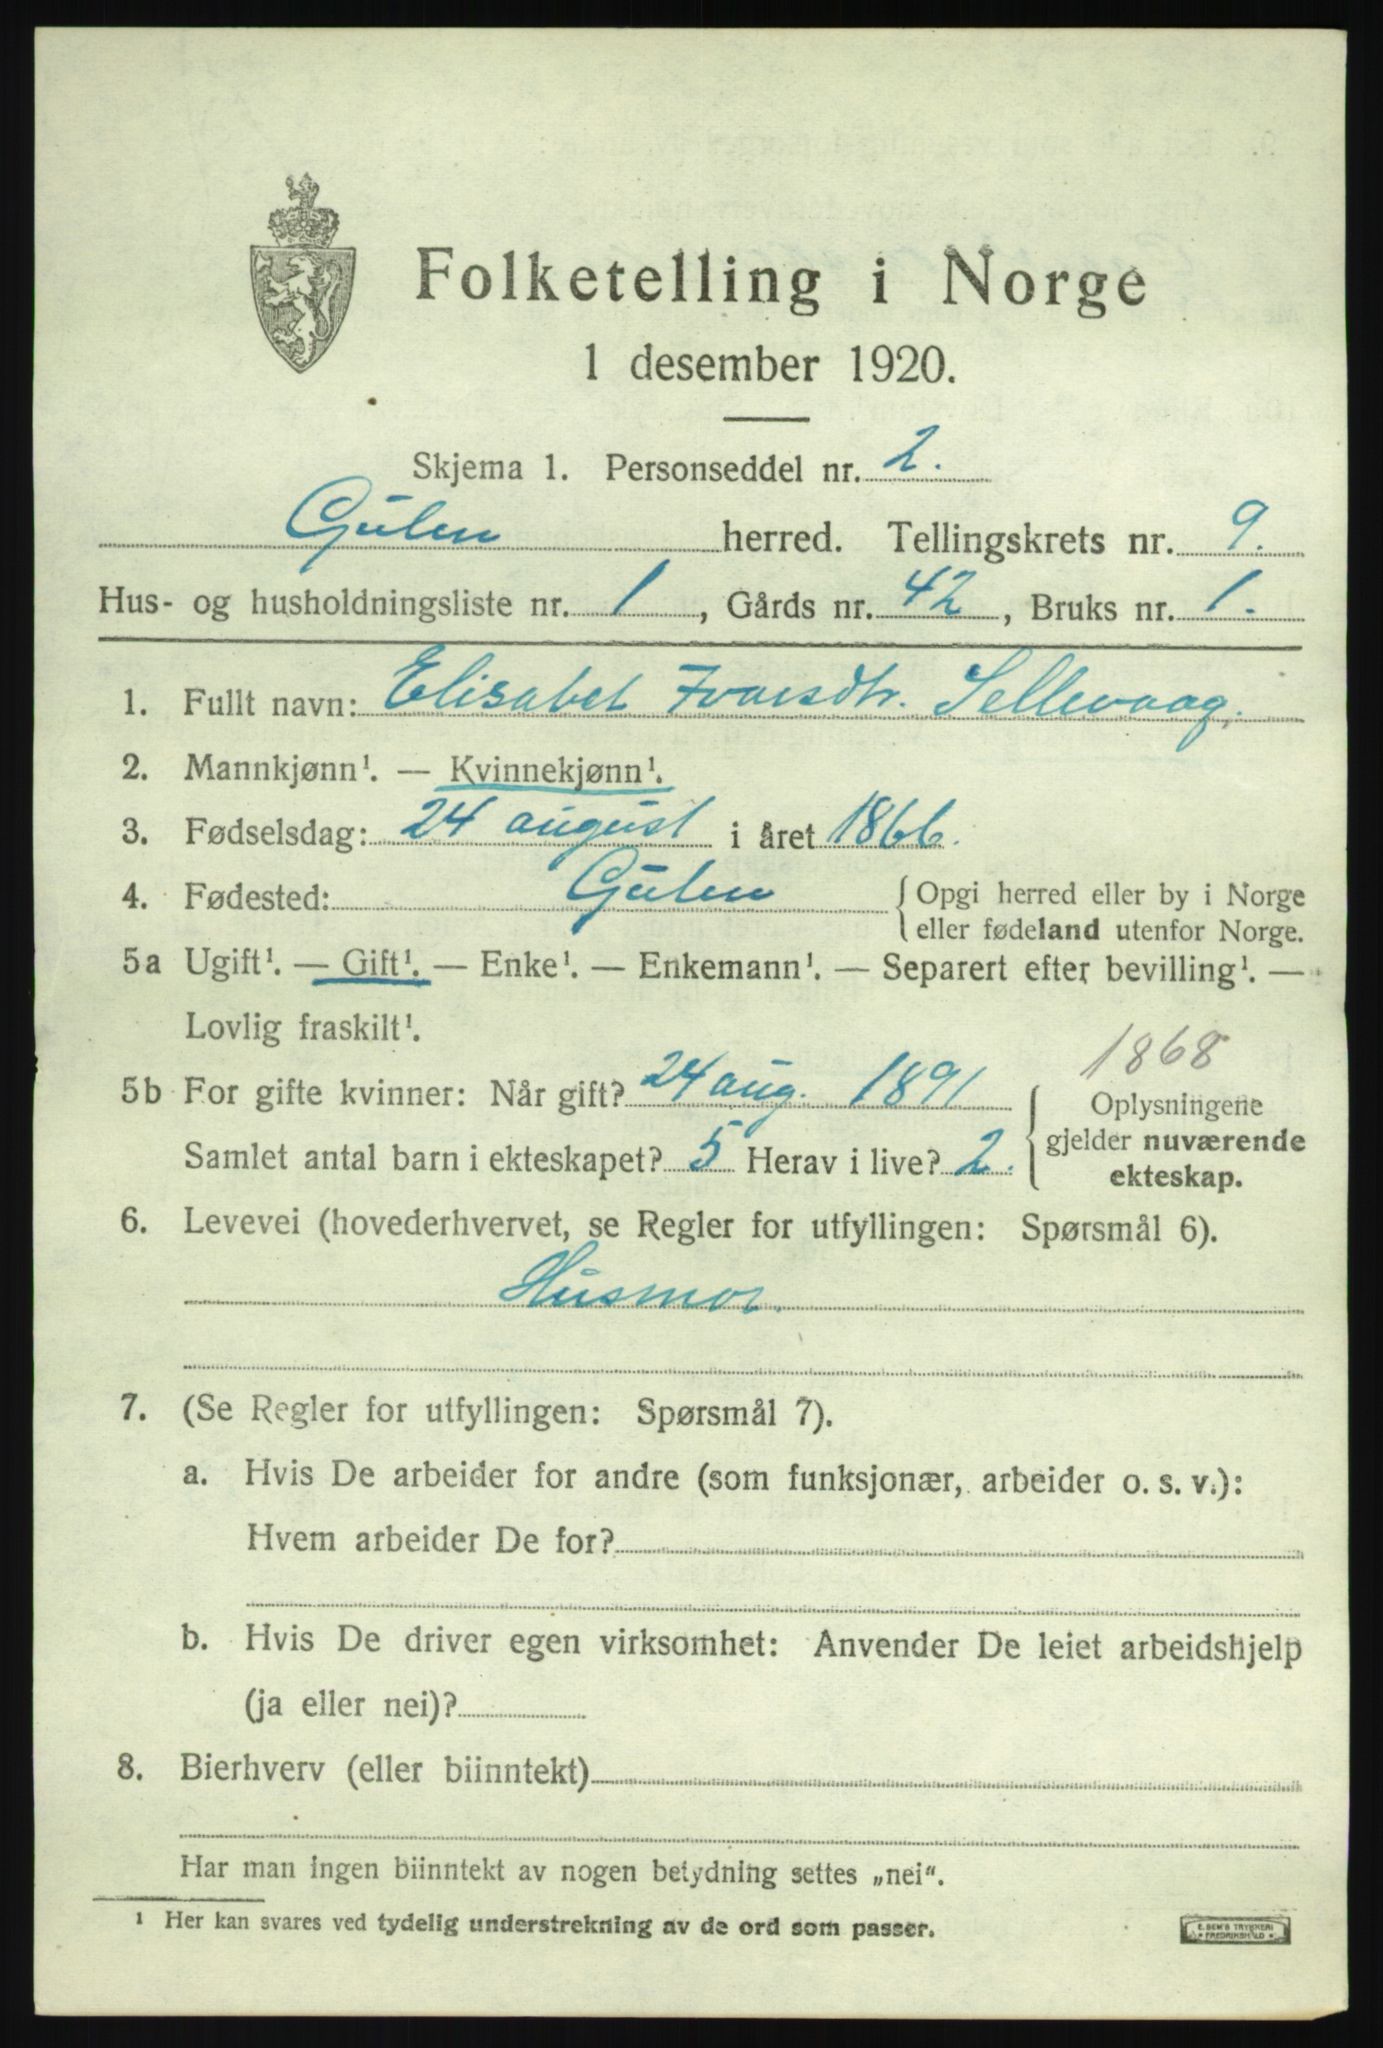 Folketelling i Norge
1 desember 1920.
Skjema 1. Personseddel nr. 2.
Gulen herred. Tellingskrets nr. 9.
Hus- og husholdningsliste nr. 1, Gårds nr. 42, Bruks nr. 1.
1. Fullt navn: Elisabet Ivarsdtr. Sellevaag.
2. Mannkjønn¹. — Kvinnekjønn¹.
3. Fødselsdag: 24 august i året 1866.
4. Fødested: Gulen { Opgi herred eller by i Norge
eller fødeland utenfor Norge.
5a Ugift¹. — Gift¹. — Enke¹. — Enkemann¹. — Separert efter bevilling¹. —
Lovlig fraskilt¹.
1868
5b For gifte kvinner: Når gift? 24 aug. 1891 { Oplysningene
gjelder nuværende
Samlet antal barn i ekteskapet? 5 Herav i live? 2.
ekteskap.
6. Levevei (hovederhvervet, se Regler for utfyllingen: Spørsmål 6).
Husmor.
7. (Se Regler for utfyllingen: Spørsmål 7).
a. Hvis De arbeider for andre (som funksjonær, arbeider o. s. v.):
Hvem arbeider De for?
b. Hvis De driver egen virksomhet: Anvender De leiet arbeidshjelp
(ja eller nei)?
8. Bierhverv (eller biinntekt)
Har man ingen biinntekt av nogen betydning settes „nei“.
¹ Her kan svares ved tydelig understrekning av de ord som passer.
E. SEM'S TRYKKERI
FREDRIKSHALD